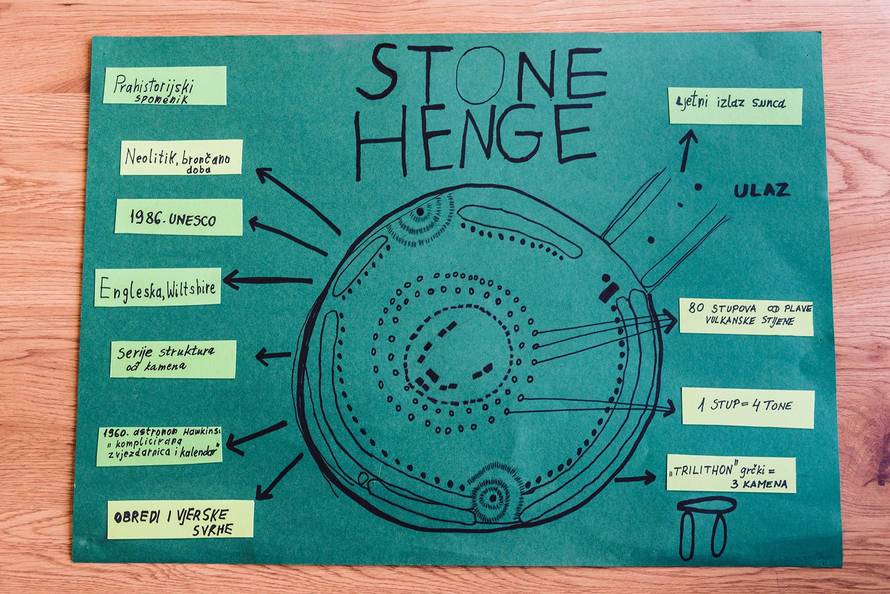 STONE
HENGE
Prahistorijski
spomenik
Neolitik, brončano
doba
1986. UNESCO
Engleska, Wiltshire
Serije struktura
od kamena
1960. astronom Hawkins:
"komplicirana
zvjezdarnica i kalendar"
OBREDI I VJERSKE
SVRHE
Ljetni izlaz sunca
ULAZ
80 STUPOVA OD PLAVE
VULKANSKE STIJENE
1 STUP = 4 TONE
"TRILITHON" grčki =
3 KAMENA